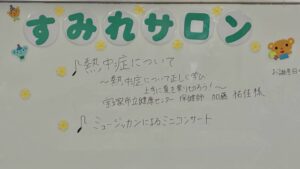 すみれサロン
♪熱中症について
～熱中症について正しく学び
上手に夏を乗り切ろう!～
宝塚市立健康センター 保健師 加藤 祐佳 様
♪ミュージックカンによるミニコンサート